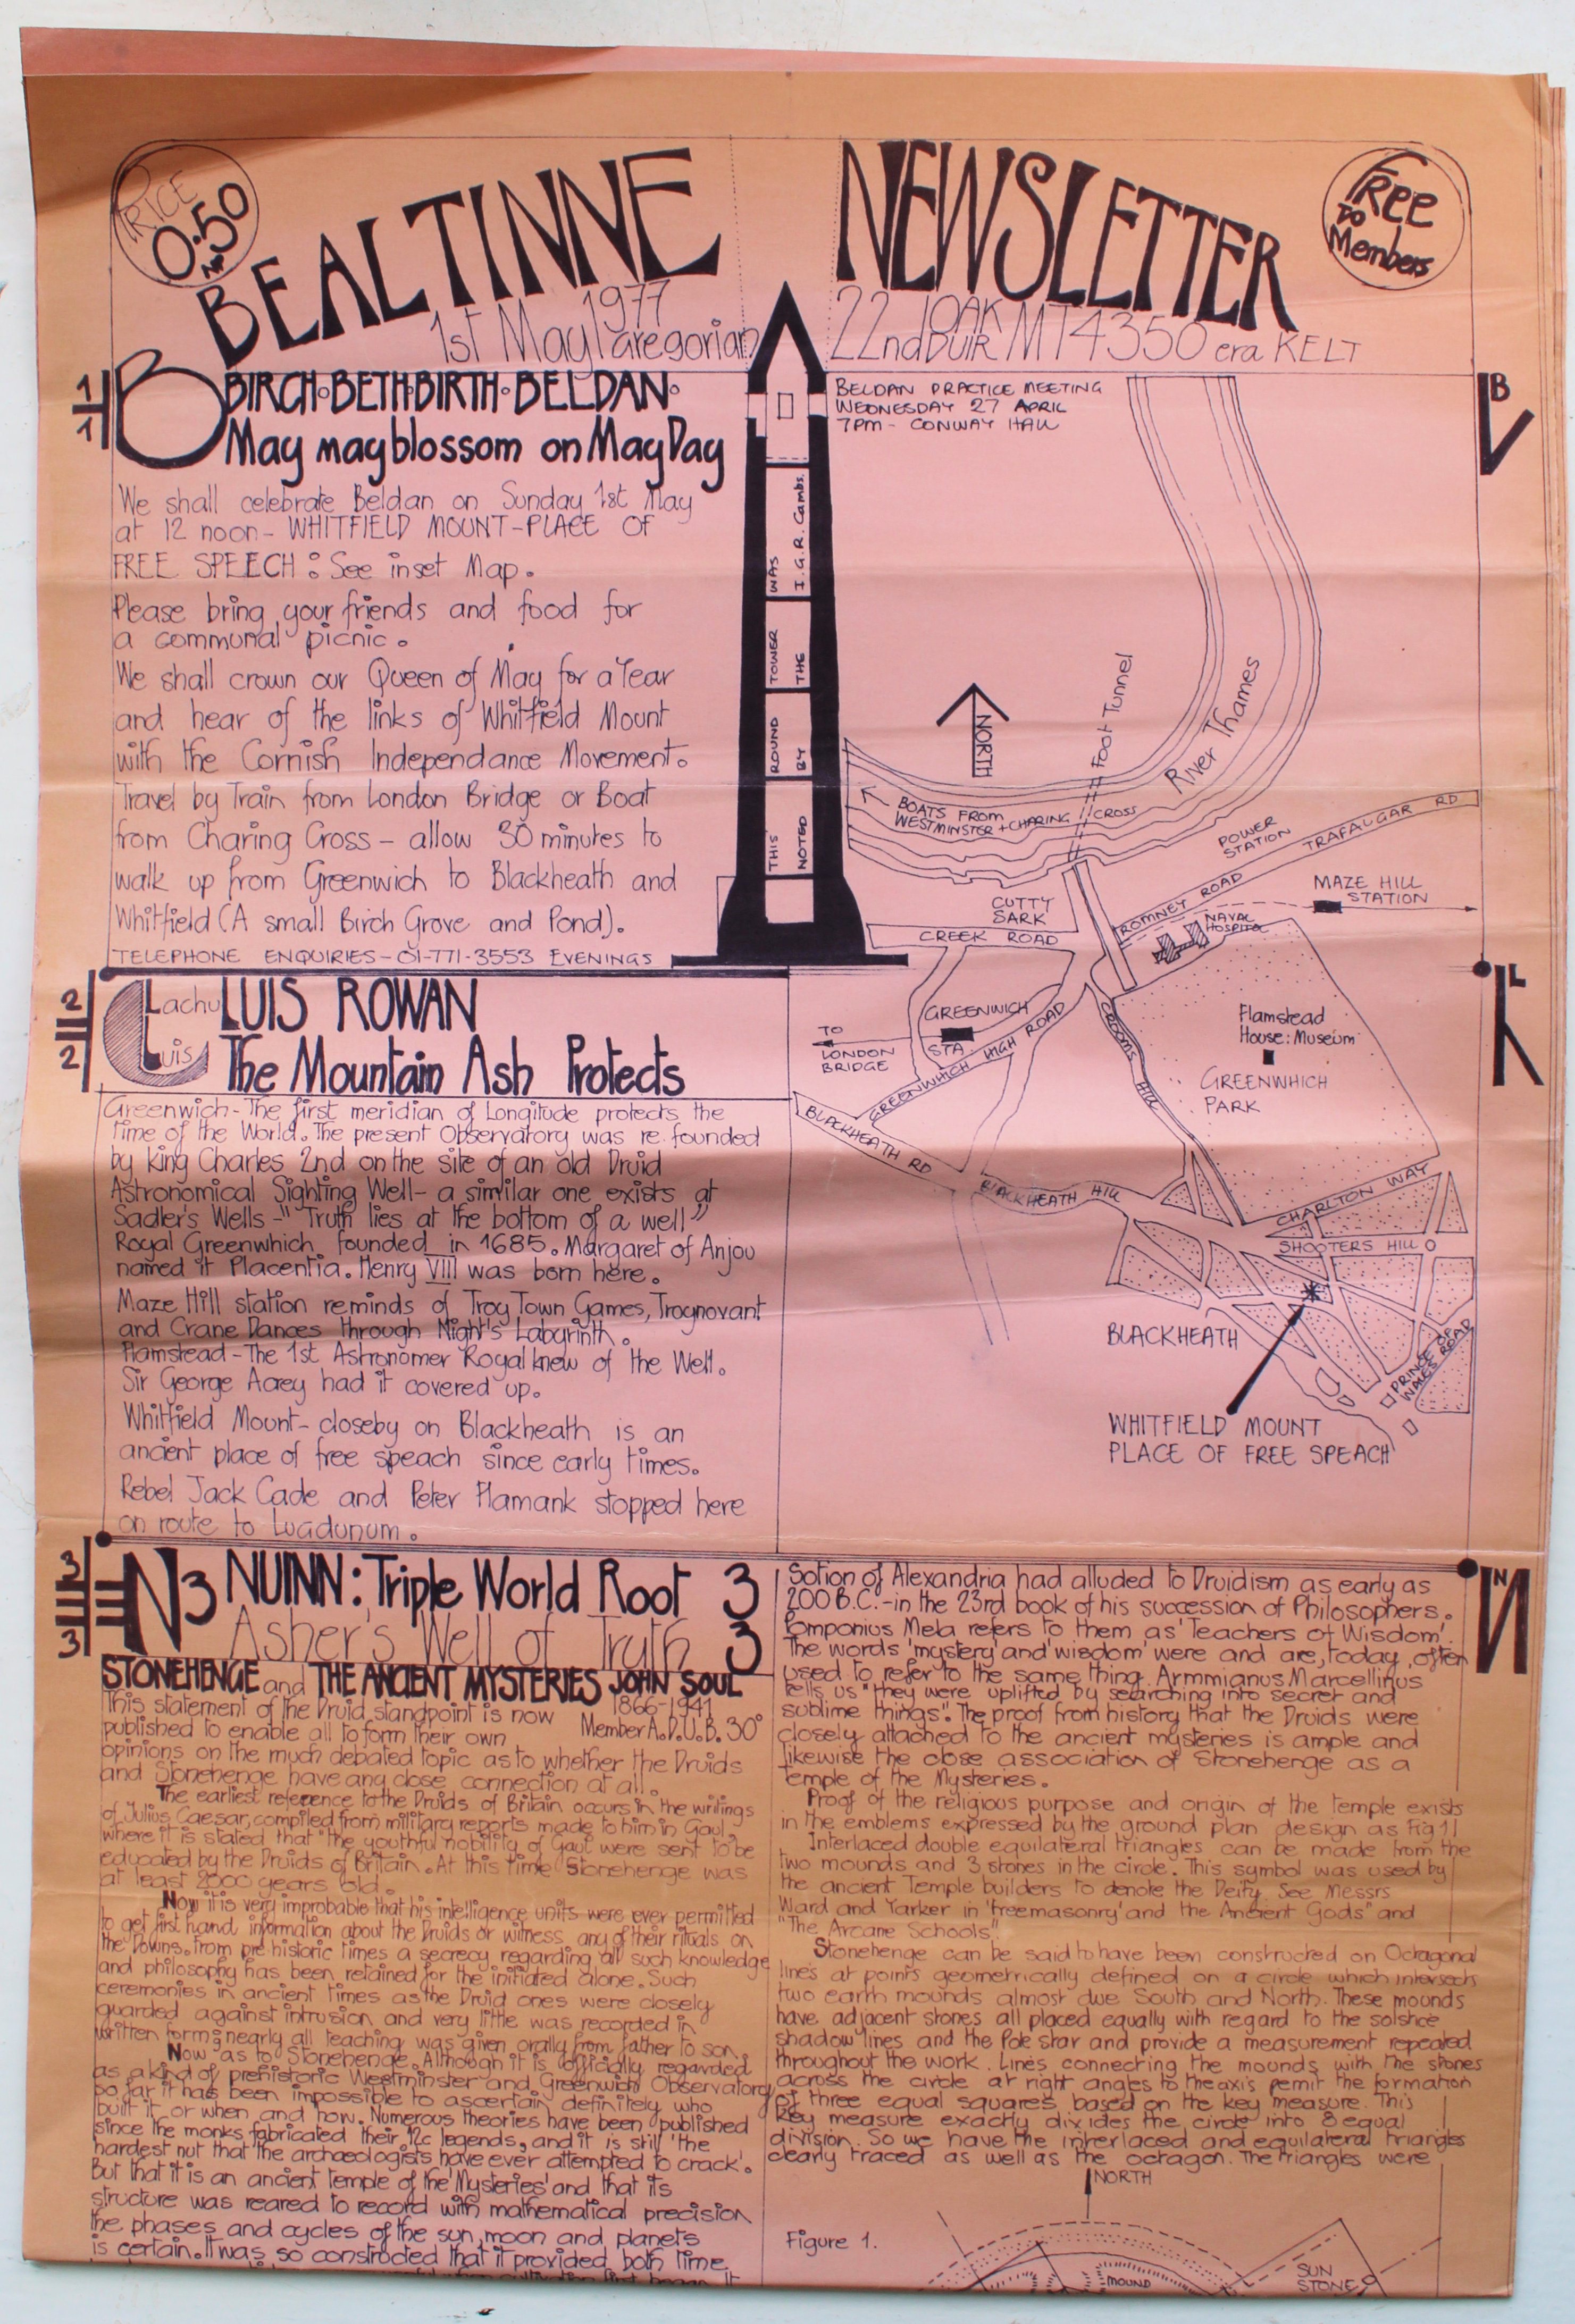 PRICE
0.50
NP
BEALTINNE NEWSLETTER
FREE
TO
Members
1st May 1977 Gregorian
22nd OAK DUIR MT 4350 era KELT
1
1
B
BIRCH·BETH·BIRTH·BELDAN·
May may blossom on May Day
We shall celebrate Beldan on Sunday 1st May
at 12 noon - WHITFIELD MOUNT - PLACE OF
FREE SPEECH : See inset Map.
Please bring your friends and food for
a communal picnic.
We shall crown our Queen of May for a Year
and hear of the links of Whitfield Mount
with the Cornish Independance Movement.
Travel by Train from London Bridge or Boat
from Charing Cross - allow 30 minutes to
walk up from Greenwich to Blackheath and
Whitfield (A small Birch Grove and Pond).
TELEPHONE ENQUIRIES - 01-771-3553 EVENINGS
THIS ROUND TOWER WAS
NOTED BY THE I.G.R. Cambs.
BELDAN PRACTICE MEETING
WEDNESDAY 27 APRIL
7PM - CONWAY HALL
B
NORTH
Foot Tunnel
River Thames
BOATS FROM
WESTMINSTER + CHARING CROSS
POWER
STATION
TRAFALGAR RD
ROMNEY ROAD
MAZE HILL
STATION
CUTTY
SARK
NAVAL
HOSPITAL
CREEK ROAD
GREENWICH
STA
TO
LONDON
BRIDGE
GREENWHICH HIGH ROAD
CROOMS HILL
Flamstead
House: Museum
GREENWHICH
PARK
BLACKHEATH RD
BLACKHEATH HILL
CHARLTON WAY
SHOOTERS HILL
BLACKHEATH
PRINCE OF
WALES ROAD
WHITFIELD MOUNT
PLACE OF FREE SPEACH
2
2
Lachu
Luis
LUIS ROWAN
The Mountain Ash Protects
L
Greenwich - The first meridian of Longitude protects the
time of the World. The present Observatory was re founded
by King Charles 2nd on the site of an old Druid
Astronomical Sighting Well - a similar one exists at
Sadler's Wells - "Truth lies at the bottom of a well"
Royal Greenwhich founded in 1685. Margaret of Anjou
named it Placentia. Henry VIII was born here.
Maze Hill station reminds of Troy Town Games, Troynovant
and Crane Dances through Night's Labyrinth.
Flamstead - The 1st Astronomer Royal knew of the Well.
Sir George Aarey had it covered up.
Whitfield Mount - closeby on Blackheath is an
ancient place of free speach since early times.
Rebel Jack Cade and Peter Flamank stopped here
on route to Lugdunum.
3
3
N3 NUINN: Triple World Root 3
Asher's Well of Truth 3
N
STONEHENGE and THE ANCIENT MYSTERIES JOHN SOUL
1866-1941
Member A.D.U.B. 30°
This statement of the Druid standpoint is now
published to enable all to form their own
opinions on the much debated topic as to whether the Druids
and Stonehenge have any close connection at all.
The earliest reference to the Druids of Britain occurs in the writings
of Julius Caesar, compiled from military reports made to him in Gaul,
where it is stated that "the youthful nobility of Gaul were sent to be
educated by the Druids of Britain. At this time Stonehenge was
at least 2000 years old.
Now it is very improbable that his intelligence units were ever permitted
to get first hand information about the Druids or witness any of their rituals on
the Downs. From pre-historic times a secrecy regarding all such knowledge
and philosophy has been retained for the initiated alone. Such
ceremonies in ancient times as the Druid ones were closely
guarded against intrusion and very little was recorded in
written form; nearly all teaching was given orally from father to son.
Now as to Stonehenge. Although it is officially regarded
as a kind of prehistoric Westminster and Greenwich Observatory
so far it has been impossible to ascertain definitely who
built it or when and how. Numerous theories have been published
since the monks fabricated their 12c legends, and it is still 'the
hardest nut that the archaeologists have ever attempted to crack'.
But that it is an ancient temple of the 'Mysteries' and that its
structure was reared to record with mathematical precision
the phases and cycles of the sun, moon and planets
is certain. It was so constructed that it provided both time
Sotion of Alexandria had alluded to Druidism as early as
200 B.C. - in the 23rd book of his succession of Philosophers.
Pomponius Mela refers to them as 'Teachers of Wisdom'.
The words 'mystery' and 'wisdom' were and are, today, often
used to refer to the same thing. Armmianus Marcellinus
tells us "they were uplifted by searching into secret and
sublime things". The proof from history that the Druids were
closely attached to the ancient mysteries is ample and
likewise the close association of Stonehenge as a
temple of the Mysteries.
Proof of the religious purpose and origin of the temple exists
in the emblems expressed by the ground plan design as Fig 1
Interlaced double equilateral triangles can be made from the
two mounds and 3 stones in the circle. This symbol was used by
the ancient Temple builders to denote the Deity. See Messrs
Ward and Yarker in 'freemasonry' and the Ancient Gods" and
"The Arcane Schools".
Stonehenge can be said to have been constructed on Octagonal
lines at points geometrically defined on a circle which intersects
two earth mounds almost due South and North. These mounds
have adjacent stones all placed equally with regard to the solstice
shadow lines and the Pole star and provide a measurement repeated
throughout the work. Lines connecting the mounds with the stones
across the circle at right angles to the axis permit the formation
of three equal squares based on the key measure. This
key measure exactly divides the circle into 8 equal
division. So we have the interlaced and equilateral triangles
clearly traced as well as the octagon. The triangles were
NORTH
Figure 1.
MOUND
SUN
STONE